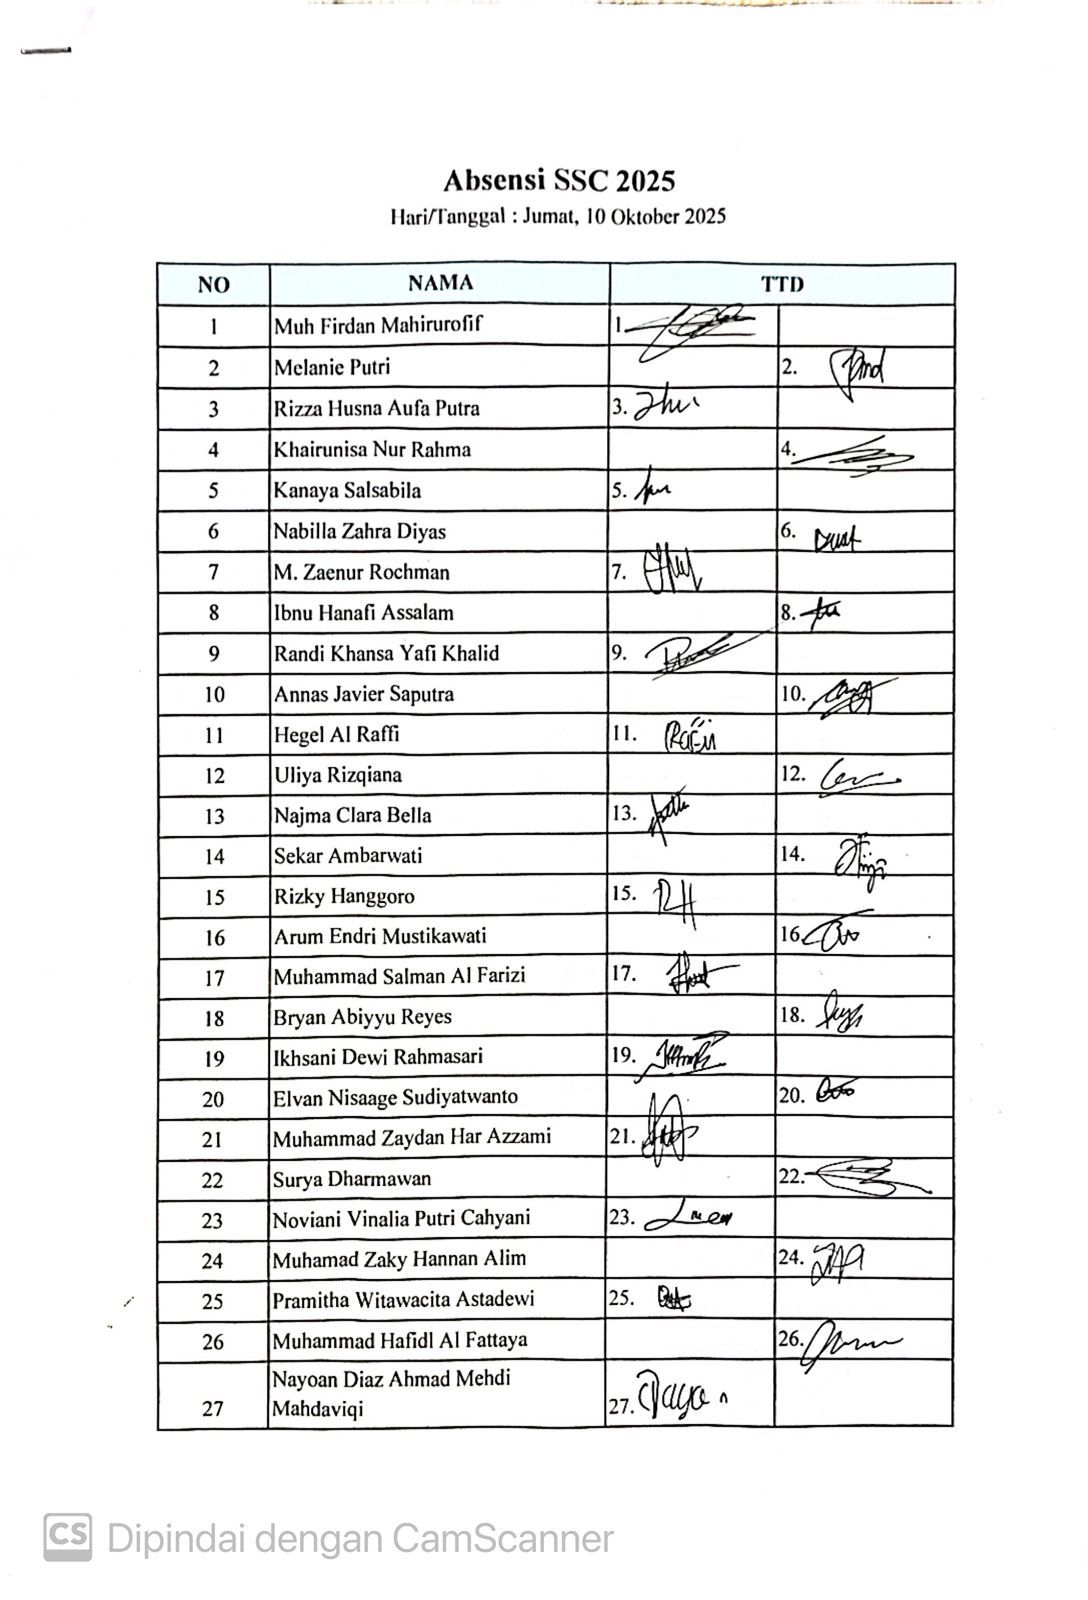 Absensi SSC 2025
Hari/Tanggal : Jumat, 10 Oktober 2025
NO NAMA TTD
1 Muh Firdan Mahirurofif 1.
2 Melanie Putri 2.
3 Rizza Husna Aufa Putra 3.
4 Khairunisa Nur Rahma 4.
5 Kanaya Salsabila 5.
6 Nabilla Zahra Diyas 6.
7 M. Zaenur Rochman 7.
8 Ibnu Hanafi Assalam 8.
9 Randi Khansa Yafi Khalid 9.
10 Annas Javier Saputra 10.
11 Hegel Al Raffi 11.
12 Uliya Rizqiana 12.
13 Najma Clara Bella 13.
14 Sekar Ambarwati 14.
15 Rizky Hanggoro 15. RH
16 Arum Endri Mustikawati 16.
17 Muhammad Salman Al Farizi 17.
18 Bryan Abiyyu Reyes 18.
19 Ikhsani Dewi Rahmasari 19.
20 Elvan Nisaage Sudiyatwanto 20.
21 Muhammad Zaydan Har Azzami 21.
22 Surya Dharmawan 22.
23 Noviani Vinalia Putri Cahyani 23.
24 Muhamad Zaky Hannan Alim 24.
25 Pramitha Witawacita Astadewi 25.
26 Muhammad Hafidl Al Fattaya 26.
Nayoan Diaz Ahmad Mehdi
27 Mahdaviqi 27.
CS Dipindai dengan CamScanner